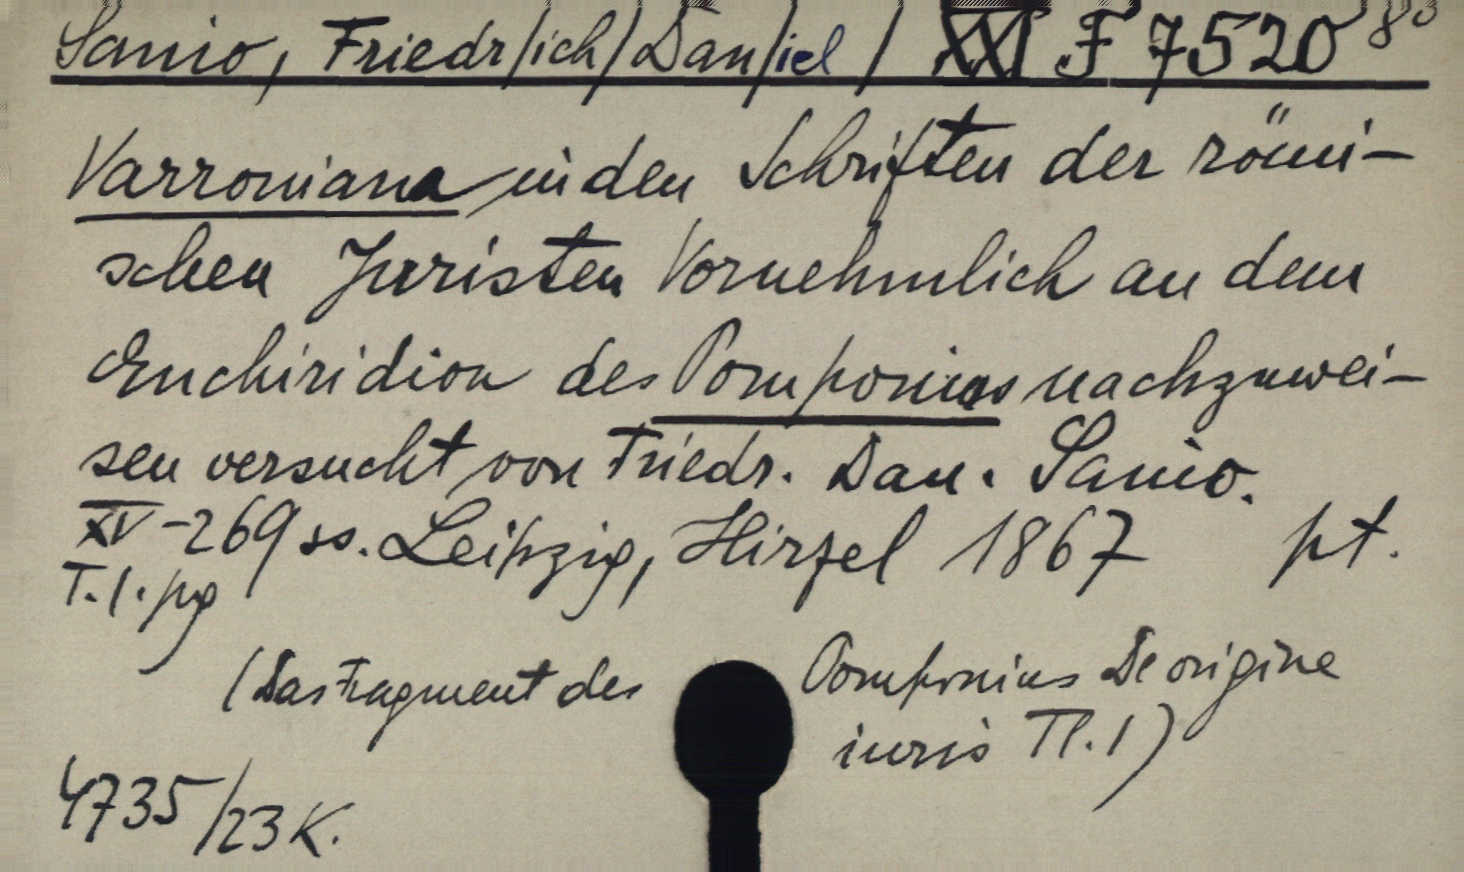 Sanio, Friedr/ich/Dan/iel/ XXI F 7520 8°
Varroniana in den Schriften der römi-
schen Juristen Vornehmlich an dem
Enchiridion des Pomponius nachzuwei-
sen versucht von Friedr. Dan. Sanio.
XV-269 ss. Leipzig, Hirzel 1867 pt.
T.1. pg
(Das Fragment des Pomponius De origine
iuris Tl. 1)
4735/23 K.